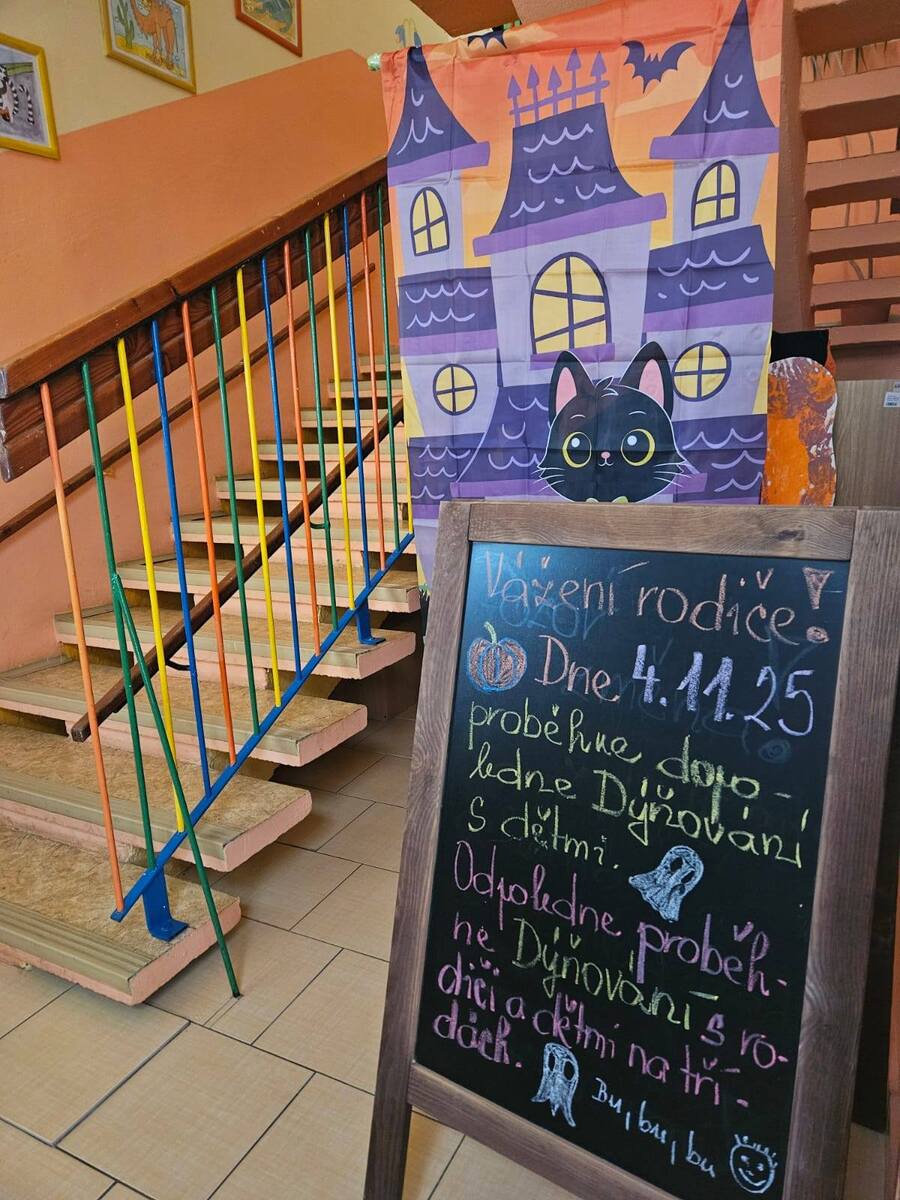 Vážení rodiče!
Dne 4.11.25
proběhne dopo-
ledne Dýňování
s dětmi.
Odpoledne proběh-
ne Dýňovaní s ro-
diči a dětmi na tří-
dách.
Bu, bu, bu